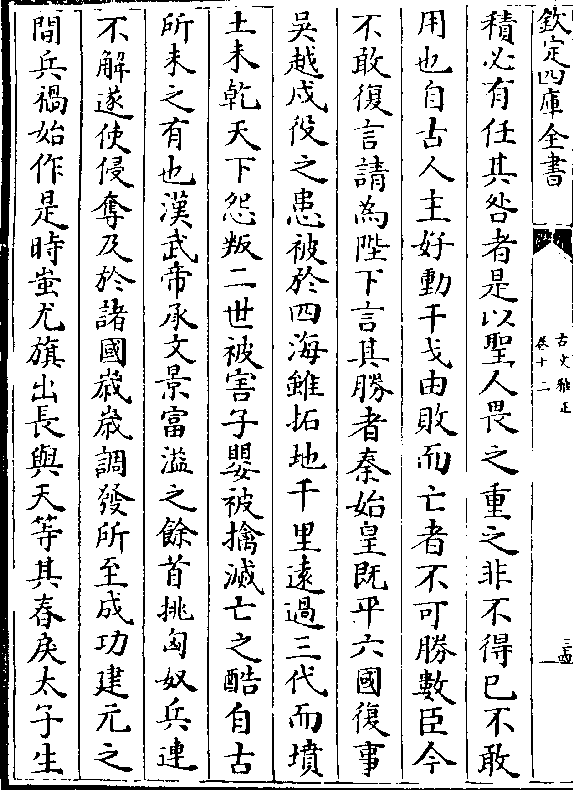 欽定四庫全書
古文雅正
卷十二
積必有任其咎者是以聖人畏之重之非不得已不敢
用也自古人主好動干戈由敗而亡者不可勝數臣今
不敢復言請為陛下言其勝者秦始皇既平六國復事
吳越戍役之患被於四海雖拓地千里遠過三代而墳
土未乾天下怨叛二世被害子嬰被擒滅亡之酷自古
所未之有也漢武帝承文景富溢之餘首挑匈奴兵連
不解遂使侵奪及於諸國歲歲調發所至成功建元之
間兵禍始作是時蚩尤旗出長與天等其春戾太子生